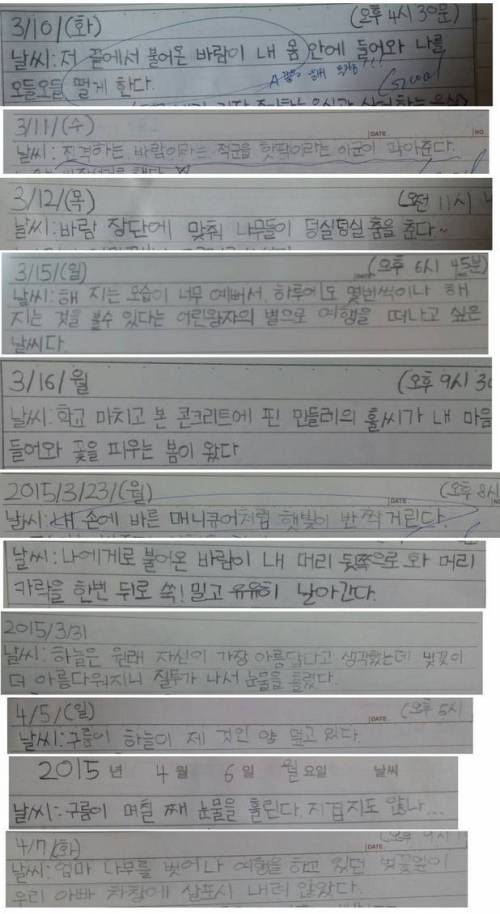 3/10/(화) (오후 4시 30분)
날씨: 저 끝에서 불어온 바람이 내 몸 안에 들어와 나를
오들오들 떨게 한다.
3/11/(수) DATE NO.
날씨: 진격하는 바람이라는 적군을 핫팩이라는 아군이 막아준다.
3/12/(목) (오전 11시
날씨: 바람 장단에 맞춰 나무들이 덩실덩실 춤을 춘다~
3/15/(일) (오후 6시 45분)
날씨: 해 지는 모습이 너무 예뻐서, 하루에도 몇번씩이나 해
지는 것을 볼수 있다는 어린왕자의 별으로 여행을 떠나고 싶은
날씨다
3/16/월 (오후 9시 30
날씨: 학교 마치고 본 콘크리트에 핀 민들레의 홀씨가 내 마음
들어와 꽃을 피우는 봄이 왔다
2015/3/23/(월) DATE (오후 8시
날씨: 내 손에 바른 매니큐어처럼 햇빛이 반짝거린다.
날씨: 나에게로 불어온 바람이 내 머리 뒷쪽으로 와 머리
카락을 한번 뒤로 쓱! 밀고 유유히 날아간다.
2015/3/31
날씨: 하늘은 원래 자신이 가장 아름답다고 생각했는데 벚꽃이
더 아름다워지니 질투가 나서 눈물을 흘렸다.
4/5/(일) DATE (오후 5시
날씨: 구름이 하늘이 제 것인 양 덮고 있다.
2015 년 4 월 6 일 월요일 날씨
날씨: 구름이 며칠 째 눈물을 흘린다. 지겹지도 않나...
4/7/(화) DATE
날씨: 엄마 나무를 벗어나 여행을 하고 있던 벚꽃잎이
우리 아빠 차창에 살포시 내려 앉았다.